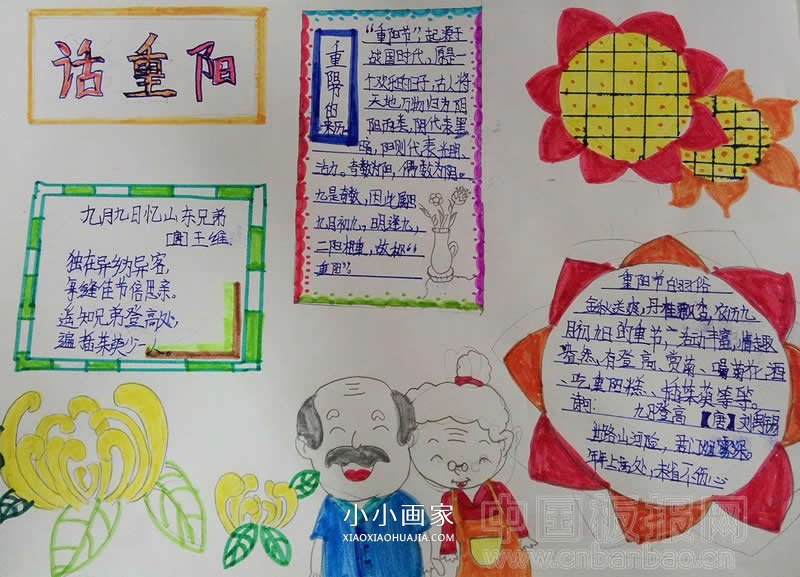 话重阳
九月九日忆山东兄弟
[唐]王维
独在异乡为异客,
每缝佳节倍思亲。
遥知兄弟登高处,
遍
少一人。
重阳节的来历
“重阳节”,起源于
战国时代,原是
一个欢乐的日子,古人将
天地万物归为阴
阳两类,阴代表黑
暗,阳则代表光明、
活力。奇数为阳,偶数为阴。
九是奇数,因此属阳
九月初九,日月逢九,
二阳相重,故称“
重阳”。
重阳节的习俗
金秋送爽,丹桂飘香,农历九
月初九日的重节,活动丰富,情趣
盎然,有登高、赏菊、喝菊花酒
、吃重阳糕、插茱萸等等。
九日登高【唐】刘禹锡
世路山河险,君门烟雾深。
年年上高处,未省不伤心
小小画家
XIAOXIAOHUAJIA.COM
中国板报网
www.cnbanbao.cn